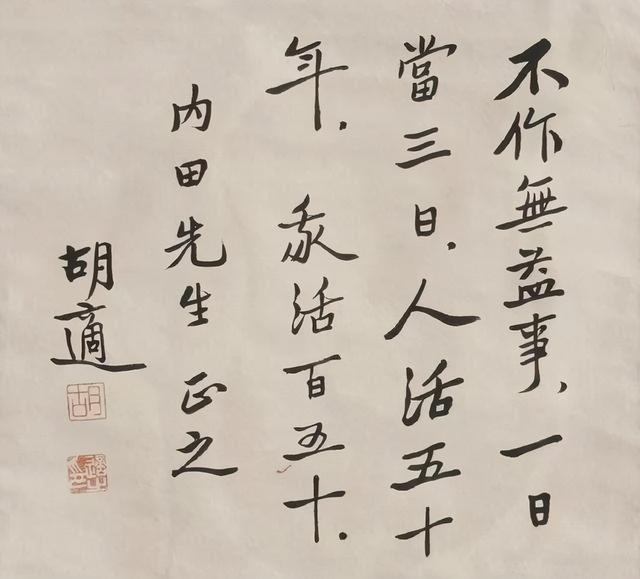 不作無益事，一日
當三日，人活五十
年，我活百五十．
内田先生 正之
胡適
胡